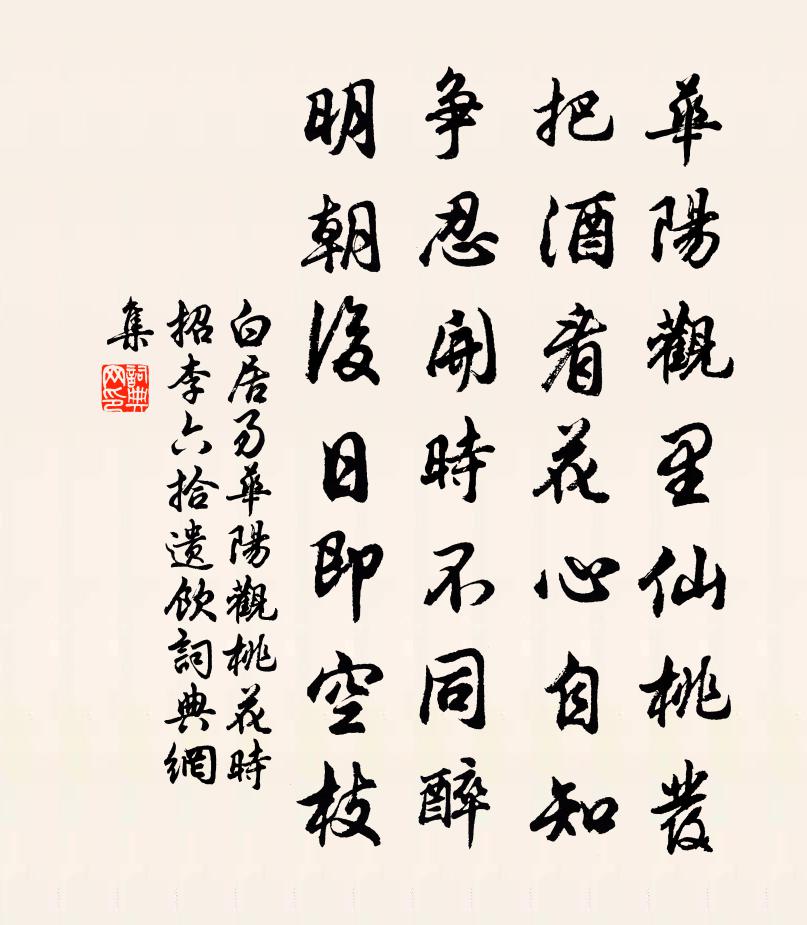 華陽觀里仙桃發
把酒看花心自知
争忍開時不同醉
明朝後日即空枝
白居易華陽觀桃花時
招李六拾遺飲詞典網
集
詞典
网印